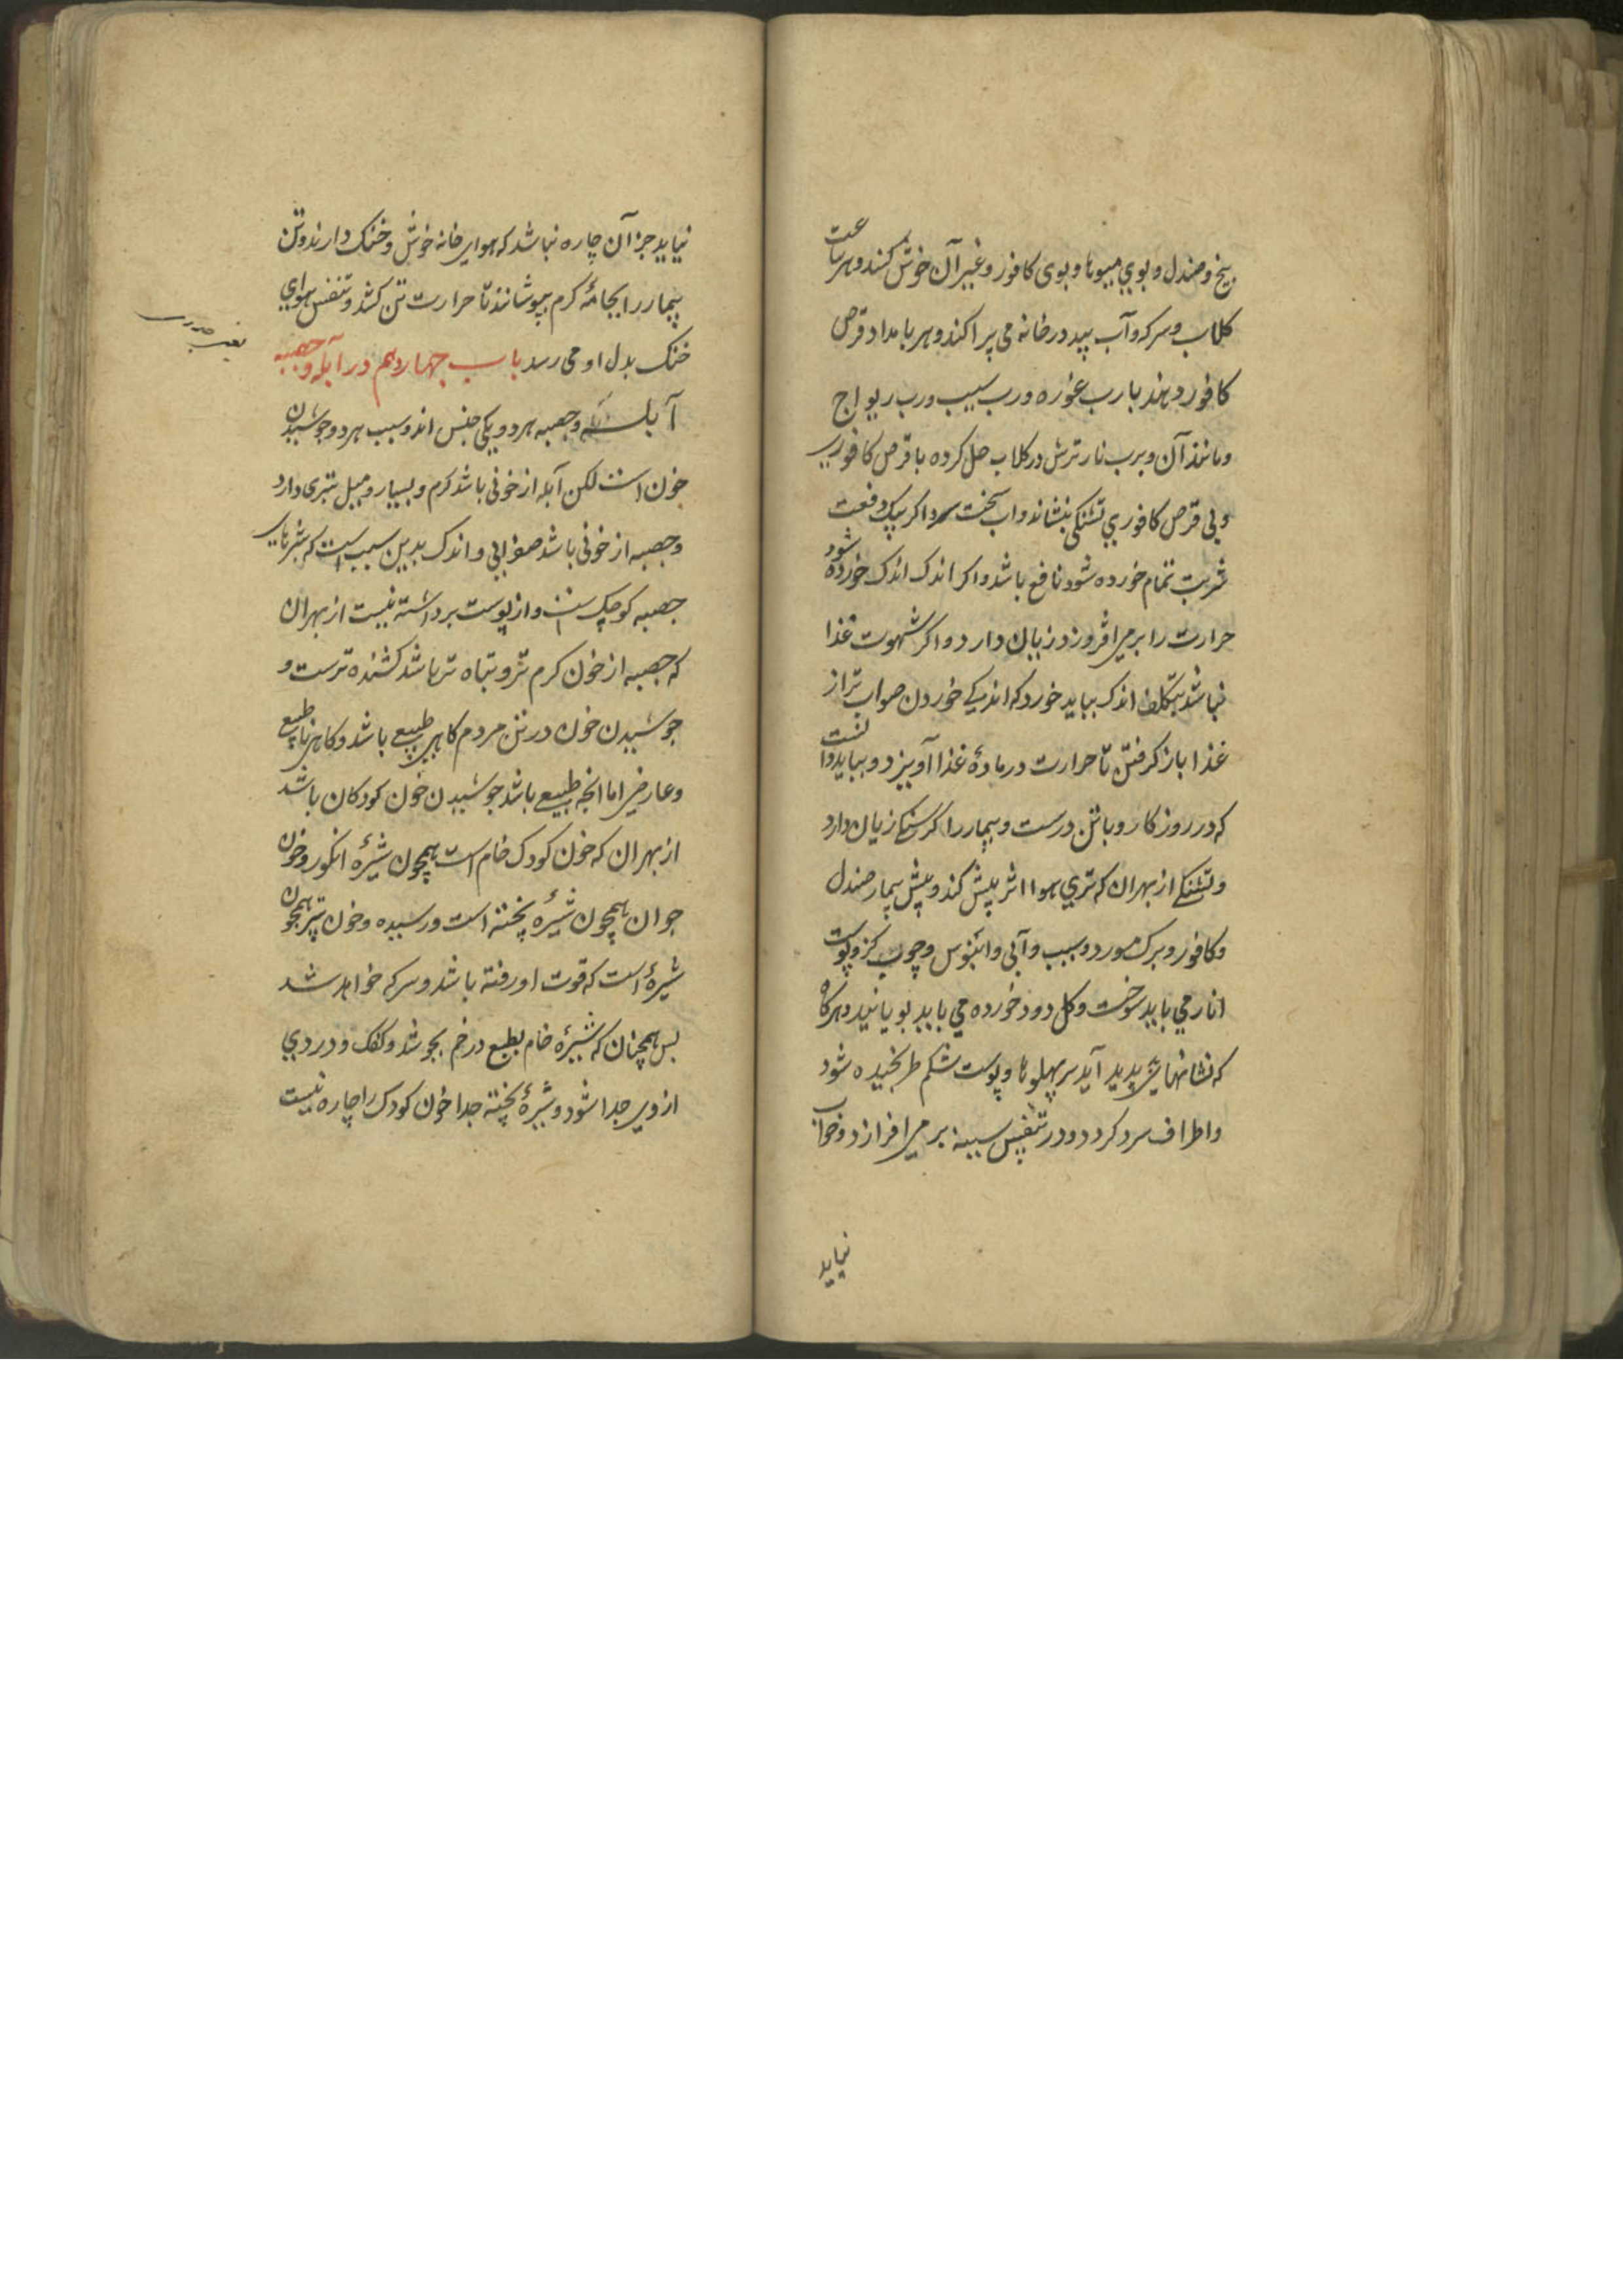 بیخ و صندل و بوی میبوها و بوی کافور و غیر آن خوش کنند و هر ساعت
کلاب و سرکه و آب بید در خانه می پراکند و هر بامداد قرص
کافور دهند با رب غوره و رب سیب و رب ریواج
و مانند آن و برب نار ترش در کلاب حل کرده با قرص کافوری
و بی قرص کافوری تشنکی بنشاند و اب سخت سرد اکر بیک دفعت
شربت تمام خورده شود نافع باشد و اکر اندک اندک خورده شود
حرارت را برمی افروزد زیان دارد و اکر شهوت غذا
نباشد بتکلف اندک بباید خورد که اندکی خوردن صواب تر از
غذا باز کرفتن تا حرارت در مادهٔ غذا آویزد و بباید دانست
که در روزکار وبا تن درست و بیمار را کرسنکی زیان دارد
و تشنکی از بهر ان که تری هوا اثر بیش کند و پیش بیمار صندل
و کافور و برک مورد و سیب و آبی و ابنوس و چوب کز و پوست
انار می باید سوخت و کل دود خورده می باید بویانید و هرکاه
که نشانهایش پدید آید سر پهلوها و پوست شکم طرنجیده شود
و اطراف سرد کردد و در تنفس سینه برمی افرازد و خواب
نیاید
نیاید جز آن چاره نباشد که هوای خانه خوش و خنک دارند و تن
بیمار را بجامهٔ کرم بپوشانند تا حرارت تن کشد و تنفس هوای
خنک بدل او می رسد باب چهاردهم در آبله و حصبه
آبله و حصبه هر دو یکی جنس اند و سبب هر دو جوشیدن
خون است لکن آبله از خونی باشد کرم و بسیار و میل بتری دارد
و حصبه از خونی باشد صفرایی و اندک بدین سبب است که بثرهای
حصبه کوچک است و از پوست برداشته نیست از بهر ان
که حصبه از خون کرم تر و تباه تر باشد کشنده ترست و
جوشیدن خون در تن مردم کاهی طبیعی باشد و کاهی ناطبیعی
و عارضی اما انجه طبیعی باشد جوشیدن خون کودکان باشد
از بهر ان که خون کودک خام است همچون شیرهٔ انکور و خون
جوان همچون شیرهٔ پخته است و رسیده و خون پیر همچون
شیرهٔ است که قوت او رفته باشد و سرکه خواهد شد
بس همچنان که شیرهٔ خام بطبع در خم بجوشد و کفک و دردی
از وی جدا شود و شیرهٔ پخته جدا خون کودک را چاره نیست